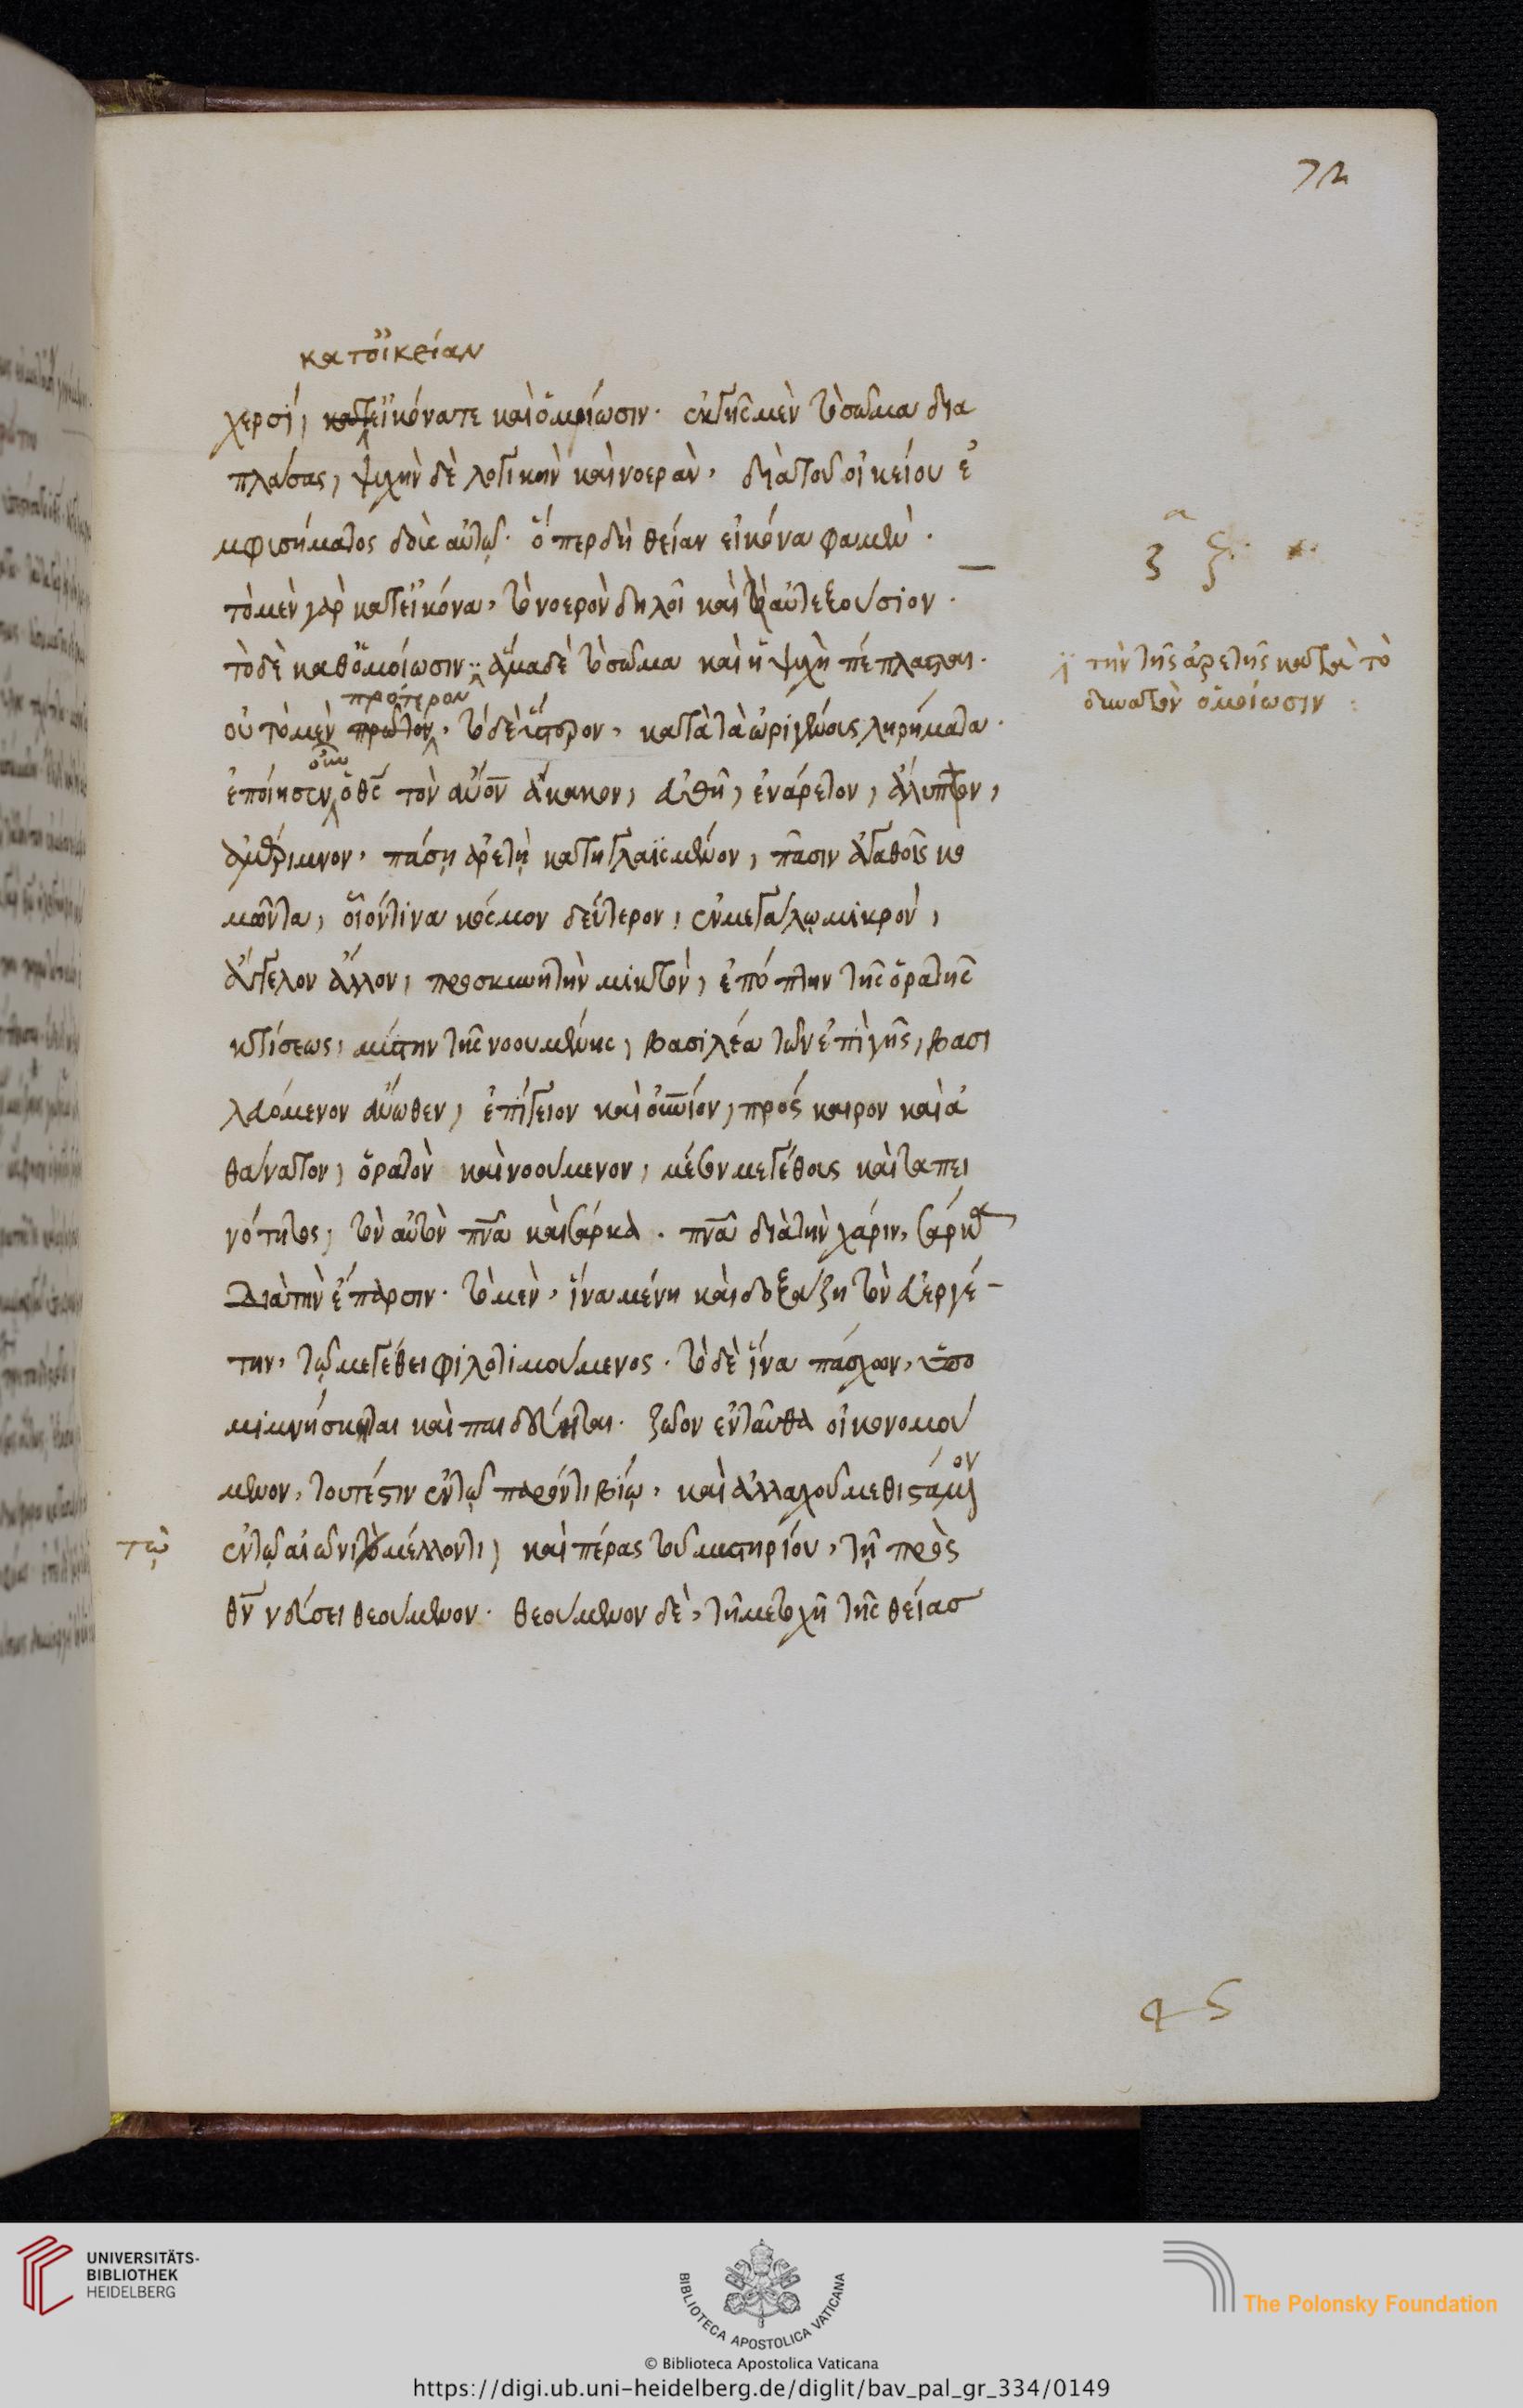 72
κατ οἰκείαν
χερσί, κατ εἰκόνα τε καὶ ὁμοίωσιν· ἐκ γῆς μὲν τὸ σῶμα δια
πλάσας, ψυχὴν δὲ λογικὴν καὶ νοερὰν, διὰ τοῦ οἰκείου ἐ
μφυσήματος δοὺς αὐτῷ· ὅπερ δὴ θείαν εἰκόνα φαμέν·
τὸ μὲν γὰρ κατ εἰκόνα, τὸ νοερὸν δηλοῖ καὶ αὐτεξούσιον·
τὸ δὲ καθ ὁμοίωσιν· ἅμα δὲ τὸ σῶμα καὶ ἡ ψυχὴ πέπλασται·
τὴν τῆς ἀρετῆς κατὰ τὸ
δυνατὸν ὁμοίωσιν :
πρότερον
οὐ τὸ μὲν πρῶτον, τὸ δὲ ὕστερον, κατὰ τὰ ὠριγένους ληρήματα·
οὖν
ἐποίησεν ὁ θς τὸν ἄνον ἄκακον, εὐθῆ, ἐνάρετον, ἄλυπον,
ἀμέριμνον, πάσῃ ἀρετῇ κατηγλαϊσμένον, πᾶσιν ἀγαθοῖς κο
μῶντα, οἷόν τινα κόσμον δεύτερον, ἐν μεγάλῳ μικρὸν,
ἄγγελον ἄλλον, προσκυνητὴν μικτὸν, ἐπόπτην τῆς ὁρατῆς
κτίσεως, μύστην τῆς νοουμένης, βασιλέα τῶν ἐπὶ γῆς, βασι
λευόμενον ἄνωθεν, ἐπίγειον καὶ οὐνιον, πρόσκαιρον καὶ ἀ
θάνατον, ὁρατὸν καὶ νοούμενον, μέσον μεγέθους καὶ ταπει
νότητος, τὸν αὐτὸν πνα καὶ σάρκα· πνα διὰ τὴν χάριν, σάρκα
διὰ τὴν ἔπαρσιν· τὸ μὲν, ἵνα μένῃ καὶ δοξάζῃ τὸν εὐεργέ-
την, τῷ μεγέθει φιλοτιμούμενος· τὸ δὲ ἵνα πάσχων, ὑπο
μιμνήσκηται καὶ παιδεύηται· ζῶον ἐνταῦθα οἰκονομού
μενον, τουτέστιν ἐν τῷ παρόντι βίῳ, καὶ ἀλλαχοῦ μεθιστάμενον
τῷ
ἐν τῷ αἰῶνι μέλλοντι, καὶ πέρας τοῦ μυστηρίου, τῇ πρὸς
θν νεύσει θεούμενον· θεούμενον δὲ, τῇ μετοχῇ τῆς θείας
45
UNIVERSITÄTS-
BIBLIOTHEK
HEIDELBERG
BIBLIOTECA APOSTOLICA VATICANA
The Polonsky Foundation
© Biblioteca Apostolica Vaticana
https://digi.ub.uni-heidelberg.de/diglit/bav_pal_gr_334/0149